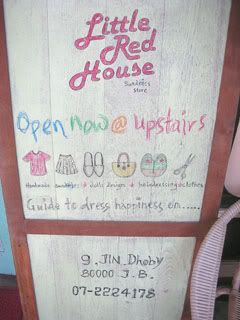 Little
Red
House
Sundries
Store
Open Now @ Upstairs
Handmade sundries dolls design hairdressing clothes
Guide to dress happiness on......
9. JLN. Dhoby
80000 J.B.
07-2224178